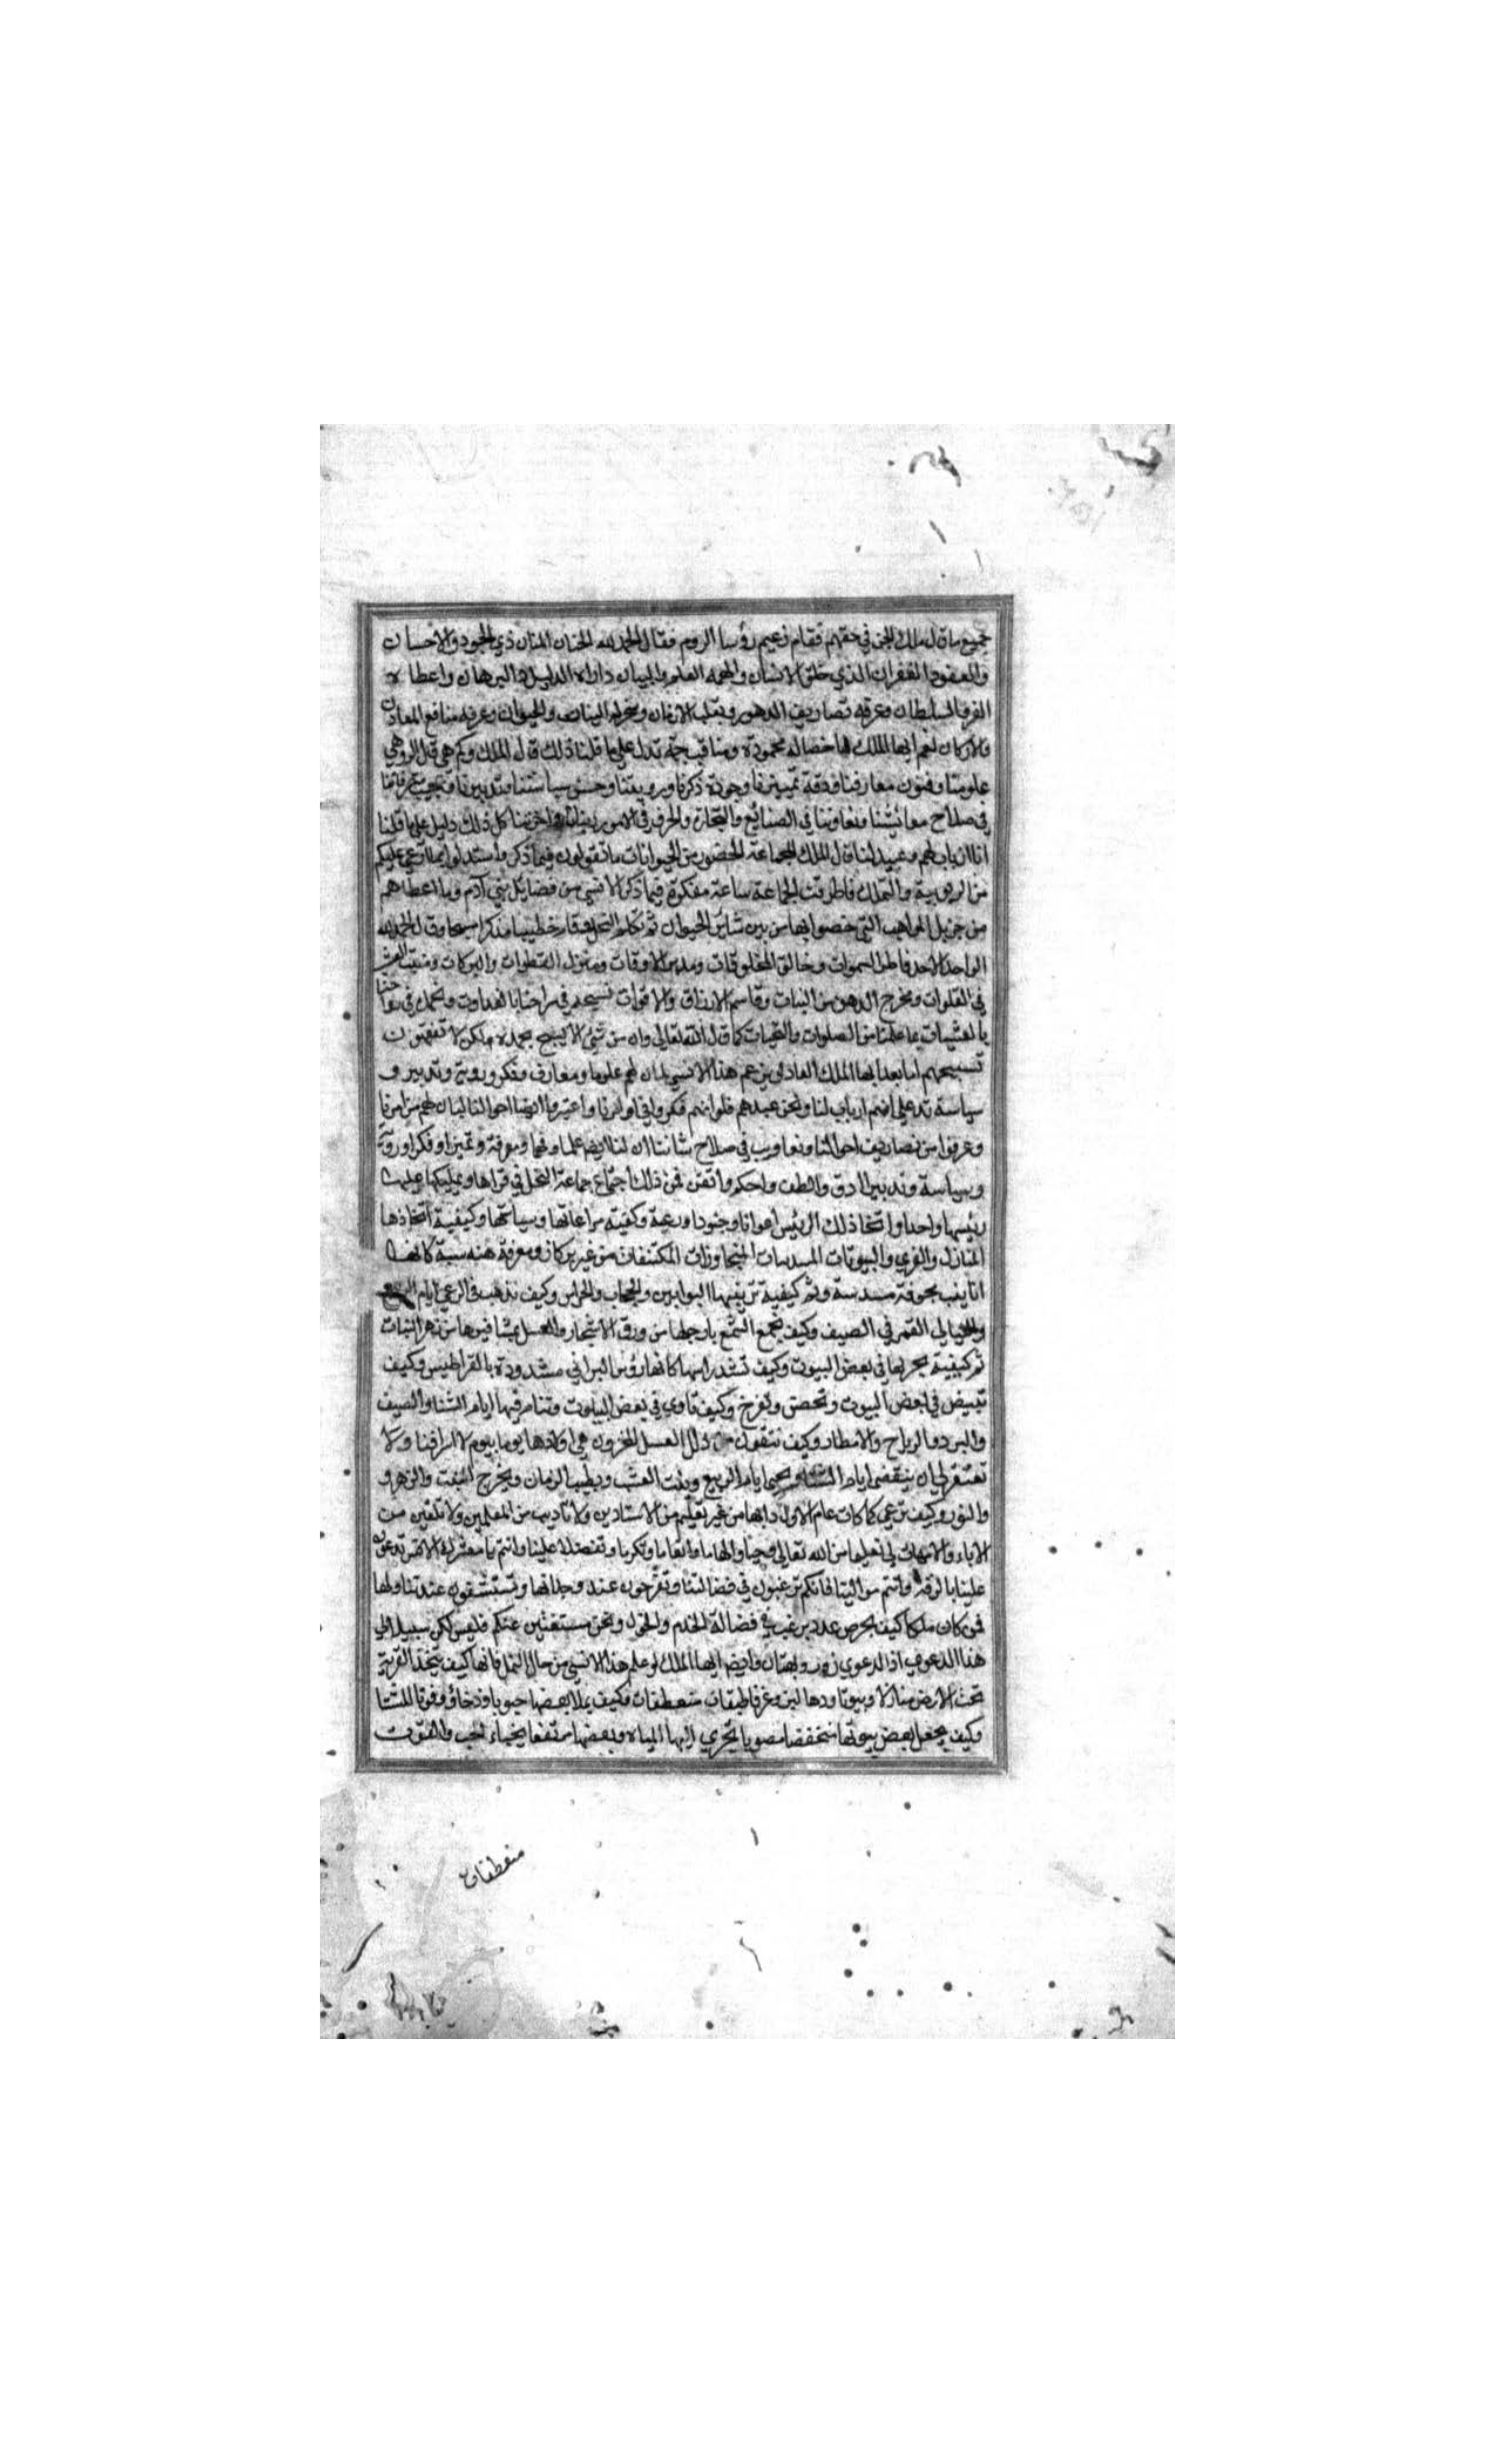 جميع ما قال ملك الجن في حقهم فقام زعيم رؤسا الروم فقال الحمد لله الحنان المنان ذي الجود والاحسان
والعفو والغفران الذي خلق الانسان والهمه العلم والبيان واراه الدليل والبرهان واعطاه
العز والسلطان وعرفه تصاريف الدهور وتقلب الازمان وسخر له النبات والحيوان وعرفه منافع المعادن
والاركان نعم ايها الملك لنا خصال محمودة ومناقب جمة تدل علي ما قلنا ذلك قال الملك وكم هي قال الرومي
علومنا وفنون معارفنا ودقة تمييزنا وجودة ذكرنا ورويتنا وحسن سياستنا وتدبيرنا وعجيب
في صلاح معائشنا وتعاوننا في الصنائع والتجارة والحرف في الامور كل ذلك دليل علي ما قلنا
انا ارباب لهم وعبيد لنا قال الملك لجماعة الحضور من الحيوانات ما تقولون فيما ذكر واستدلوا بما ادعي عليكم
من الربوبية والتملك فاطرقت الجماعة ساعة مفكرة فيما ذكر الانسي من فضائل بني آدم وما اعطاهم
من جزيل المواهب التي خصوا بها من بين سائر الحيوان ثم تكلم النحل وقام خطيبا مذكرا مسبحا وقال الحمد لله
الواحد الاحد فاطر السموات وخالق المخلوقات ومدبر الاوقات ومنزل القطرات والبركات ومنبت العشب
في الفلوات ومخرج الدهن من النبات وقاسم الارزاق والاقوات نسبحه في مراحنا بالغدوات ونحمده في رواحنا
بالعشيات بما علمنا من الصلوات والتحيات كما قال الله تعالي وان من شيئ الا يسبح بحمده ولكن لا تفقهون
تسبيحهم اما بعد ايها الملك العادل يزعم هذا الانسي بان لهم علوما ومعارف وفكر وروية وتدبير و
سياسة تدل علي انهم ارباب لنا ونحن عبيدهم فلو انهم فكروا في امرنا واعتبروا ايضا احوالنا لبان لهم من امرنا
وعرفوا من تصاريف احوالنا وتعاوننا في صلاح شاننا ان لنا ايضا علما وفهما ومعرفة وتميزا وفكرا وروية
وسياسة وتدبيرا ادق والطف واحكم واتقن فمن ذلك اجتماع جماعة النحل في قراها وتمليكها عليها
رئيسا واحدا واتخاذ ذلك الرئيس اعوانا وجنودا ورعية وكيفية مراعاتها وسياستها وكيفية اتخاذها
المنازل والقري والبيوتات المسدسات المتجاورات المكتنفات من غير بركار ومعرفة هندسية كانها
انابيب مجوفة مسدسة وثم كيفية ترتيبها البوابين والحجاب والحراس وكيف تذهب في الرعي ايام الربيع
والليالي القمر في الصيف وكيف تجمع الشمع بارجلها من ورق الاشجار والعسل بمشافرها من زهر النبات
ثم كيفية تحرزها في بعض البيوت وكيف تشد راسها كانها رؤس البراني مشدودة بالقراطيس وكيف
تبيض في بعض البيوت وتحضن وتفرخ وكيف تاوي في بعض البيوت وتنام فيها ايام الشتا والصيف
والبرد والرياح والامطار وكيف تتقوت من ذلك العسل المخزون هي اولادها يوما بيوم لا اسرافا ولا
تقتيرا الي ان ينقضي ايام الشتاء ويجي ايام الربيع وينبت العشب ويطيب الزمان ويخرج النبت والزهر و
والنور وكيف ترعي كما كانت عام الاول دابها من غير تعليم من الاستادين ولا تاديب من المعلمين ولا تلقين من
الاباء والامهات بل تعليما من الله تعالي وحيا والهاما وانعاما وتكرما وتفضلا علينا وانتم يا معشر الانس تدعون
علينا بالرقية وانتم موالينا فانكم ترغبون في فضالتنا وتفرحون عند وجدانها وتستشفون عند تناولها
فمن كان ملكا كيف يحرص عدد يرغب في فضالة الخدم والخول ونحن مستغنين عنكم فليس لكم سبيل الي
هذا الدعوي اذ الدعوي زور وبهتان وايضا ايها الملك لو علم هذا الانسي من حال النمل فانها كيف يتخذ القرية
تحت الارض منازلا وبيوتا ودهاليز وغرفا طبقات منعطفات وكيف يملا بعضها حبوبا وذخائر وقوتا للشتا
وكيف يجعل بعض بيوتها منخفضا مصوبا يجري اليها المياه وبعضها مرتفعا يخباء الحب والقوت
منعطفات